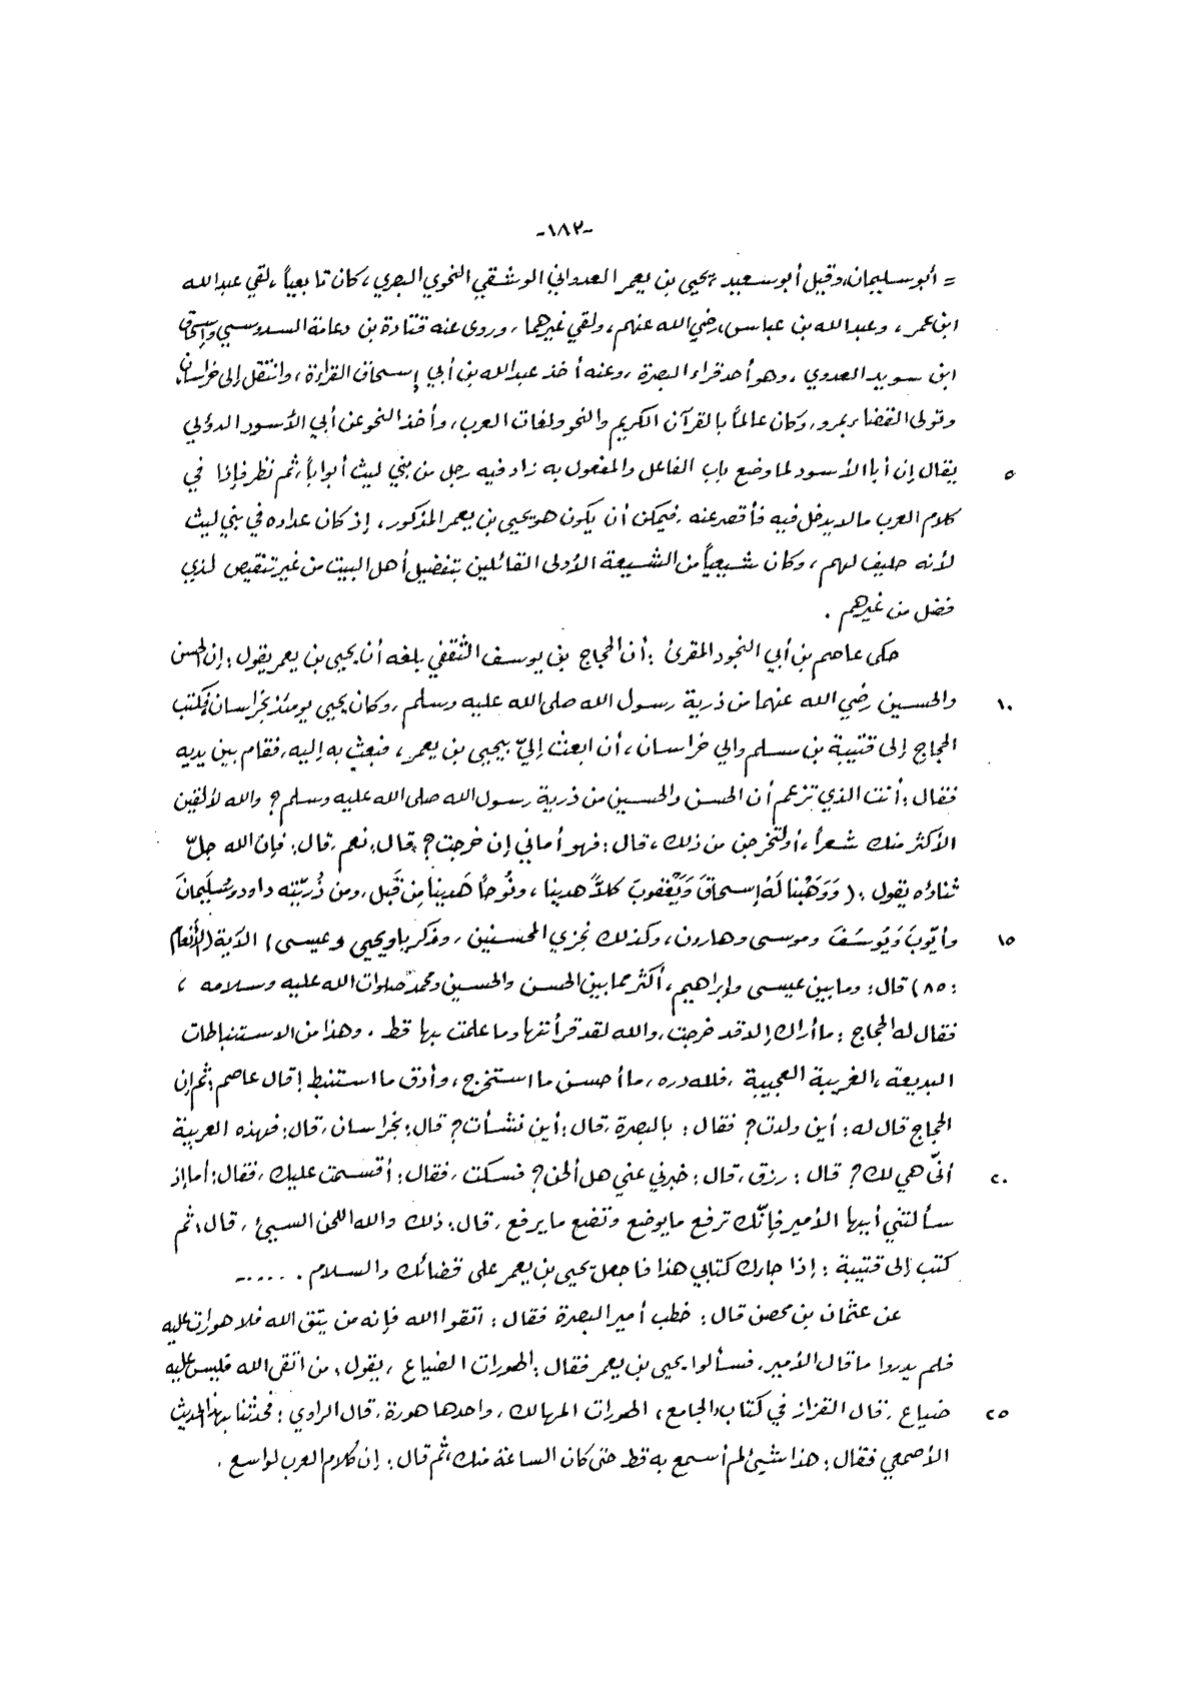 -١٨٢-
= أبو سليمان، وقيل أبو سعيد، يحيى بن يعمر العدواني الوشقي النحوي البصري، كان تابعياً، لقي عبد الله
ابن عمر، وعبد الله بن عباس، رضي الله عنهم، ولقي غيرهما، وروى عنه قتادة بن دعامة السدوسي وإسحاق
ابن سويد العدوي، وهو أحد قراء البصرة، وعنه أخذ عبد الله بن أبي إسحاق القراءة، وانتقل إلى خراسان،
وتولى القضاء بمرو، وكان عالماً بالقرآن الكريم والنحو ولغات العرب، وأخذ النحو عن أبي الأسود الدؤلي
٥ يقال إن أبا الأسود لما وضع باب الفاعل والمفعول به زاد فيه رجل من بني ليث أبواباً، ثم نظر فإذا في
كلام العرب مالا يدخل فيه فأقصر عنه، فيمكن أن يكون هو يحيى بن يعمر المذكور، إذ كان عداده في بني ليث
لأنه حليف لهم، وكان شيعياً من الشيعة الأولى القائلين بتفضيل أهل البيت من غير تنقيص لذي
فضل من غيرهم.
حكى عاصم بن أبي النجود المقرئ: أن الحجاج بن يوسف الثقفي بلغه أن يحيى بن يعمر يقول: إن الحسن
١٠ والحسين رضي الله عنهما من ذرية رسول الله صلى الله عليه وسلم، وكان يحيى يومئذ بخراسان، فكتب
الحجاج إلى قتيبة بن مسلم والي خراسان، أن ابعث إليّ بيحيى بن يعمر، فبعث به إليه، فقام بين يديه
فقال: أنت الذي تزعم أن الحسن والحسين من ذرية رسول الله صلى الله عليه وسلم؟ والله لألقين
الأكثر منك شعراً، أو لتخرجن من ذلك، قال: فهو أماني إن خرجت؟ قال: نعم، قال: فإن الله جلّ
ثناؤه يقول: (وَوَهَبْنا لَهُ إسحاقَ وَيَعْقوبَ كلاًّ هدينا، ونُوحاً هَدينا مِن قَبل، ومن ذُرّيّتِه داودَ وسُلَيمانَ
١٥ وأيّوبَ وَيُوسَفَ وموسى وهارون، وكذلك نجزي المحسنين، وزكريا ويحيى وعيسى) الآية (الأنعام
: ٨٥) قال: وما بين عيسى وإبراهيم، أكثر مما بين الحسن والحسين ومحمد صلوات الله عليه وسلامه،
فقال له الحجاج: ما أراك إلا قد خرجت، والله لقد قرأتها وما علمت بها قط. وهذا من الاستنباطات
البديعة، الغريبة العجيبة، فلله دره، ما أحسن ما استخرج، وأدق ما استنبط! قال عاصم: ثم إن
الحجاج قال له: أين ولدت؟ فقال: بالبصرة، قال: أين نشأت؟ قال: بخراسان، قال: فهذه العربية
٢٠ أنّى هي لك؟ قال: رزق، قال: خبرني عني هل ألحن؟ فسكت، فقال: أقسمت عليك، فقال: أما إذ
سألتني أيها الأمير فإنّك ترفع ما يوضع وتضع ما يرفع، قال: ذلك والله اللحن السيئ، قال: ثم
كتب إلى قتيبة: إذا جاءك كتابي هذا فاجعل يحيى بن يعمر على قضائك والسلام. .....
عن عثمان بن محصن قال: خطب أمير البصرة فقال: اتقوا الله فإنه من يتق الله فلا هوارت عليه
فلم يدروا ما قال الأمير، فسألوا يحيى بن يعمر فقال: الهورات الضياع، يقول: من اتقى الله فليس عليه
٢٥ ضياع. قال القزاز في كتاب الجامع، الهورات المهالك، واحدها هورة، قال الراوي: فحدثنا بهذا الحديث
الأصمعي فقال: هذا شيئ لم أسمع به قط حتى كان الساعة منك، ثم قال: إن كلام العرب لواسع.